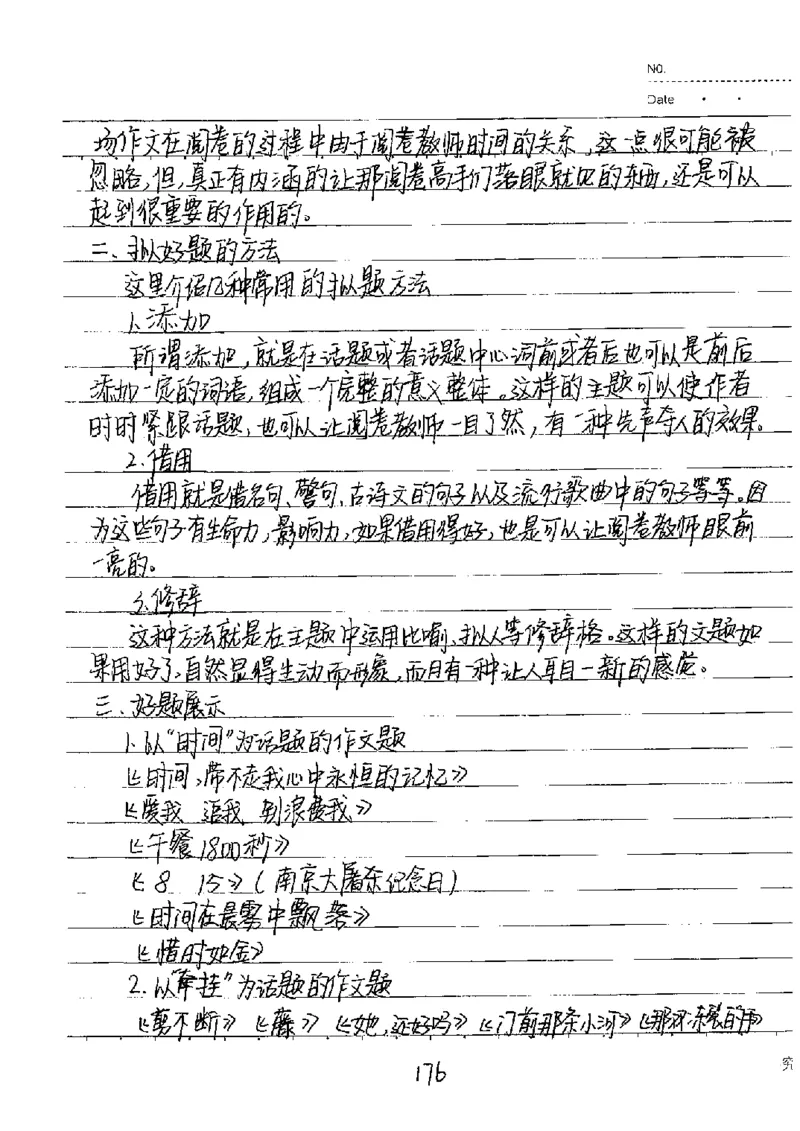 NO.
Date
场作文在阅卷的过程中由于阅卷教师时间的关系,这一点很可能被
忽略,但,真正有内涵的让那阅卷高手们落眼就见的东西,还是可以
起到很重要的作用的。
二、拟好题的方法
这里介绍几种常用的拟题方法
1.添加
所谓添加,就是在话题或者话题中心词前或者后也可以是前后
添加一定的词语,组成一个完整的意义整体。这样的主题可以使作者
时时紧跟话题,也可以让阅卷教师一目了然,有一种先声夺人的效果。
2.借用
借用就是借名句、警句、古诗文的句子以及流行歌曲中的句子等等。因
为这些句子有生命力,影响力,如果借用得好,也是可以让阅卷教师眼前
一亮的。
3.修辞
这种方法就是在主题中运用比喻、拟人等修辞格。这样的文题如
果用好了,自然显得生动而形象,而且有一种让人耳目一新的感觉。
三、好题展示
1.以“时间”为话题的作文题
《时间,带不走我心中永恒的记忆》
《爱我 追我 别浪费我》
《午餐1800秒》
《8 15》(南京大屠杀纪念日)
《时间在晨雾中飘落》
《惜时如金》
2.以“牵挂”为话题的作文题
《剪不断》《藤》《她,还好吗》《门前那条小河》《那双冻裂的手》
176
究